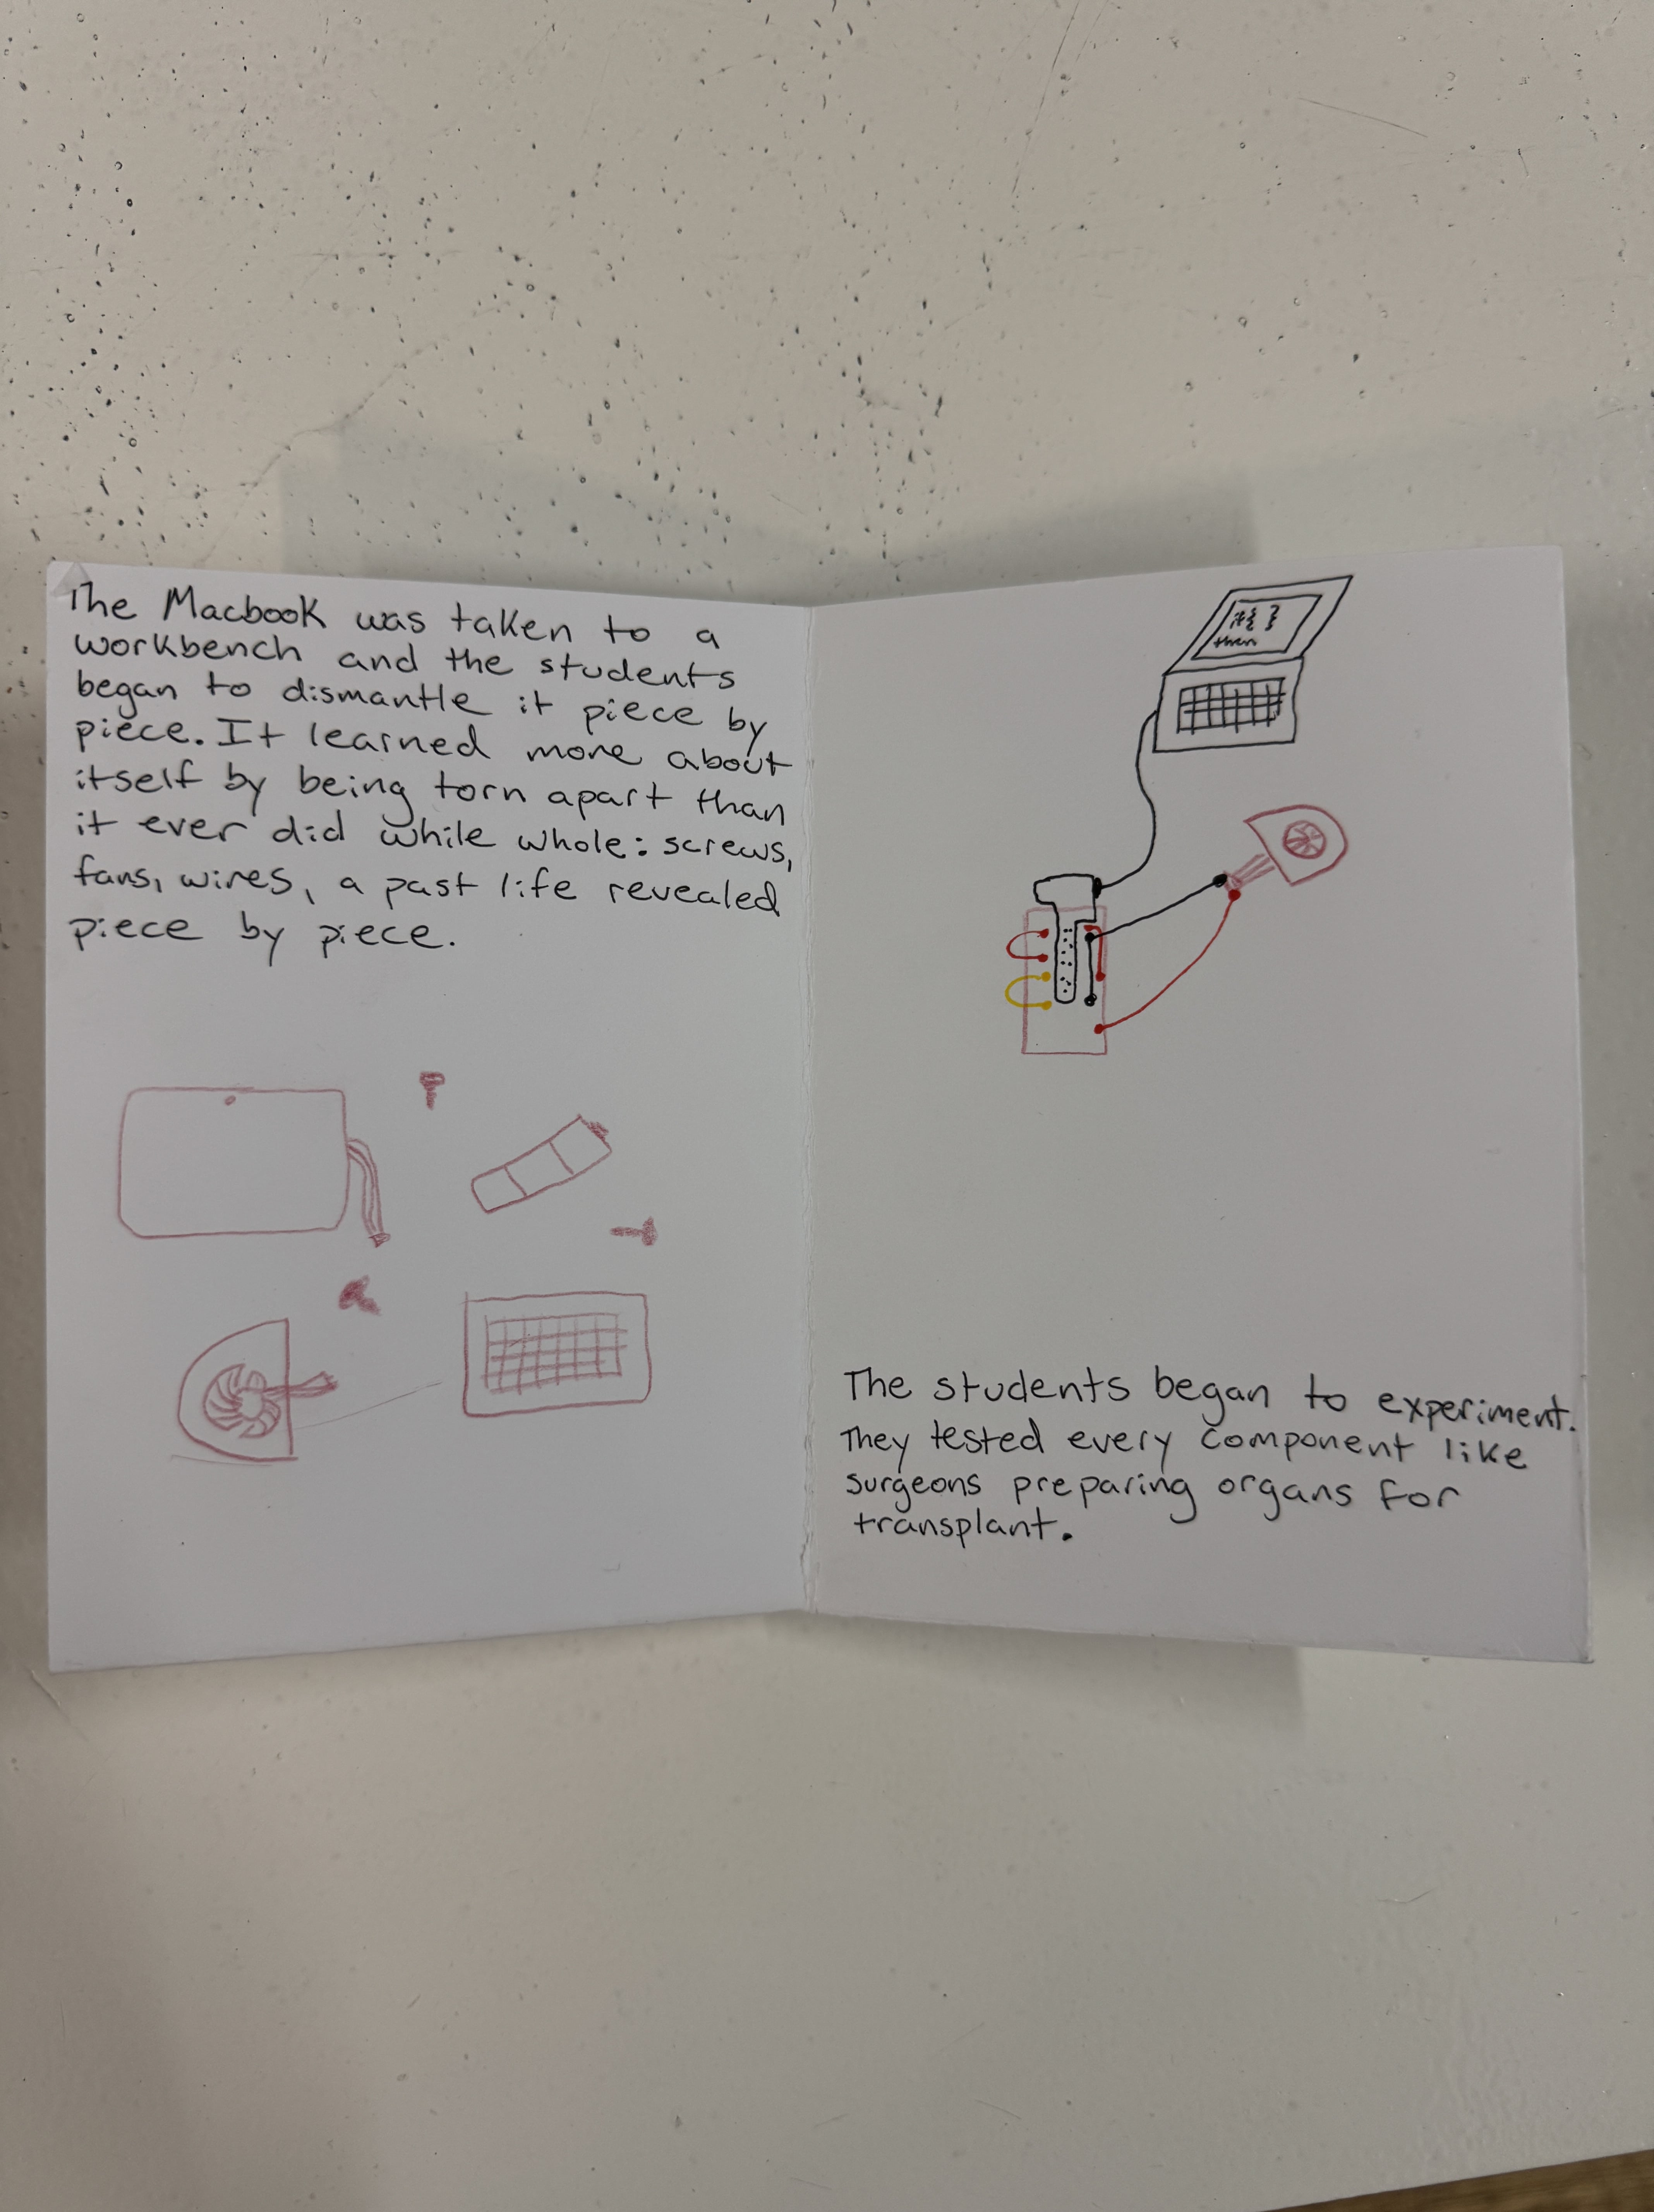 The Macbook was taken to a
workbench and the students
began to dismantle it piece by
piece. It learned more about
itself by being torn apart than
it ever did while whole: screws,
fans, wires, a past life revealed
piece by piece.
then
The students began to experiment.
They tested every component like
surgeons preparing organs for
transplant.